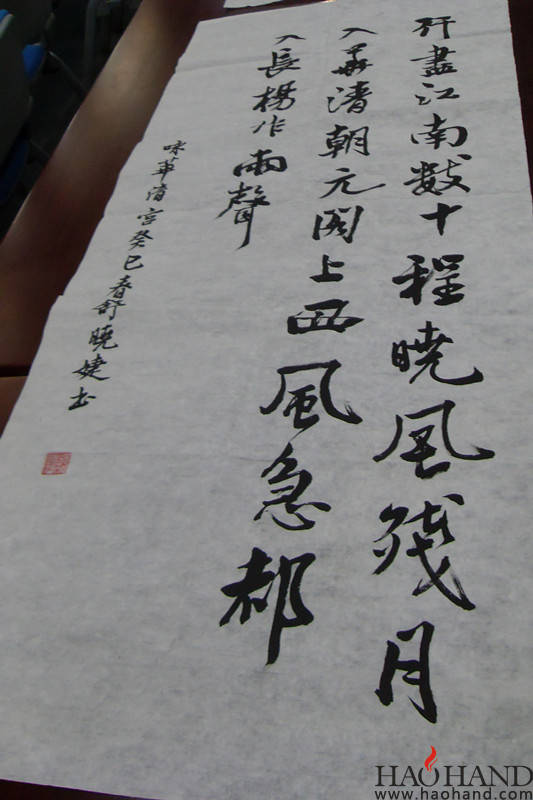 行盡江南數十程曉風殘月
入華清朝元閣上西風急都
入長楊作雨聲
咏華清宮癸巳春舒曉婕书
HAOHAND
www.haohand.com